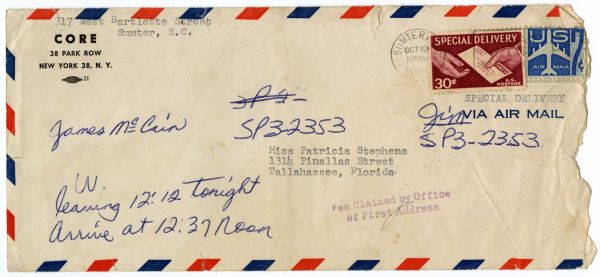 317 West Bartlette Street
Sumter, S.C.
CORE
38 PARK ROW
NEW YORK 38, N. Y.
21
SUMTER,
OCT 19
SPECIAL DELIVERY
30¢
U.S. POSTAGE
US
AIR MAIL
7¢
SPECIAL DELIVERY
VIA AIR MAIL
James McCain
SP3-2353
Jim
SP3-2353
Miss Patricia Stephens
1314 Pinallas Street
Tallahassee, Florida
W.
leaving 12:12 tonight
Arrive at 12:37 Noon
Fee Claimed by Office
of First Address